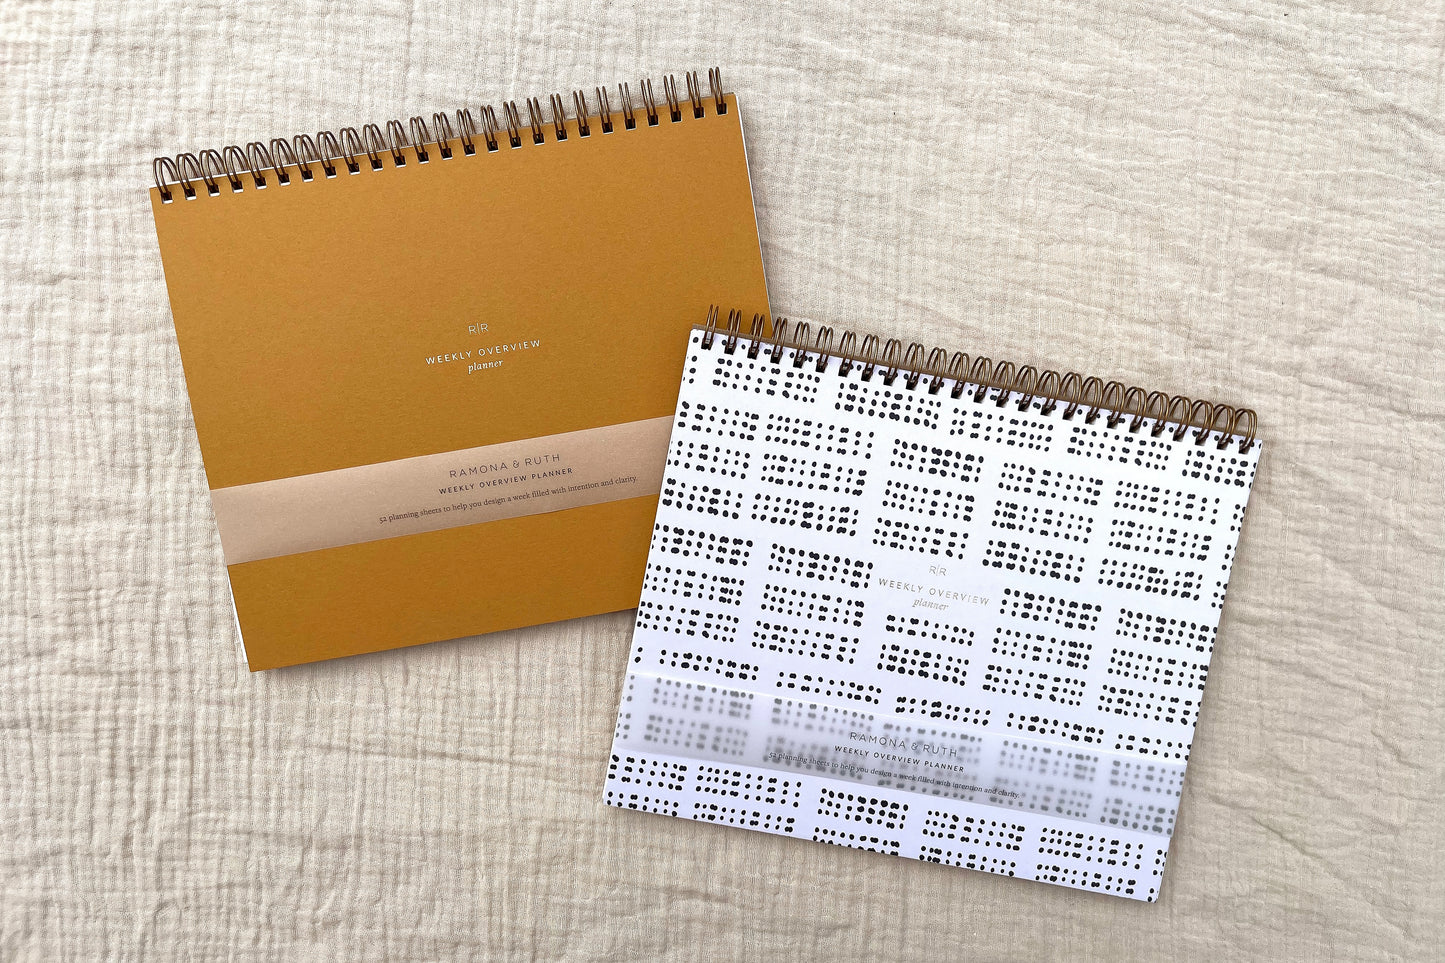 R|R
WEEKLY OVERVIEW
planner
RAMONA & RUTH
WEEKLY OVERVIEW PLANNER
52 planning sheets to help you design a week filled with intention and clarity.
R|R
WEEKLY OVERVIEW
planner
RAMONA & RUTH
WEEKLY OVERVIEW PLANNER
52 planning sheets to help you design a week filled with intention and clarity.